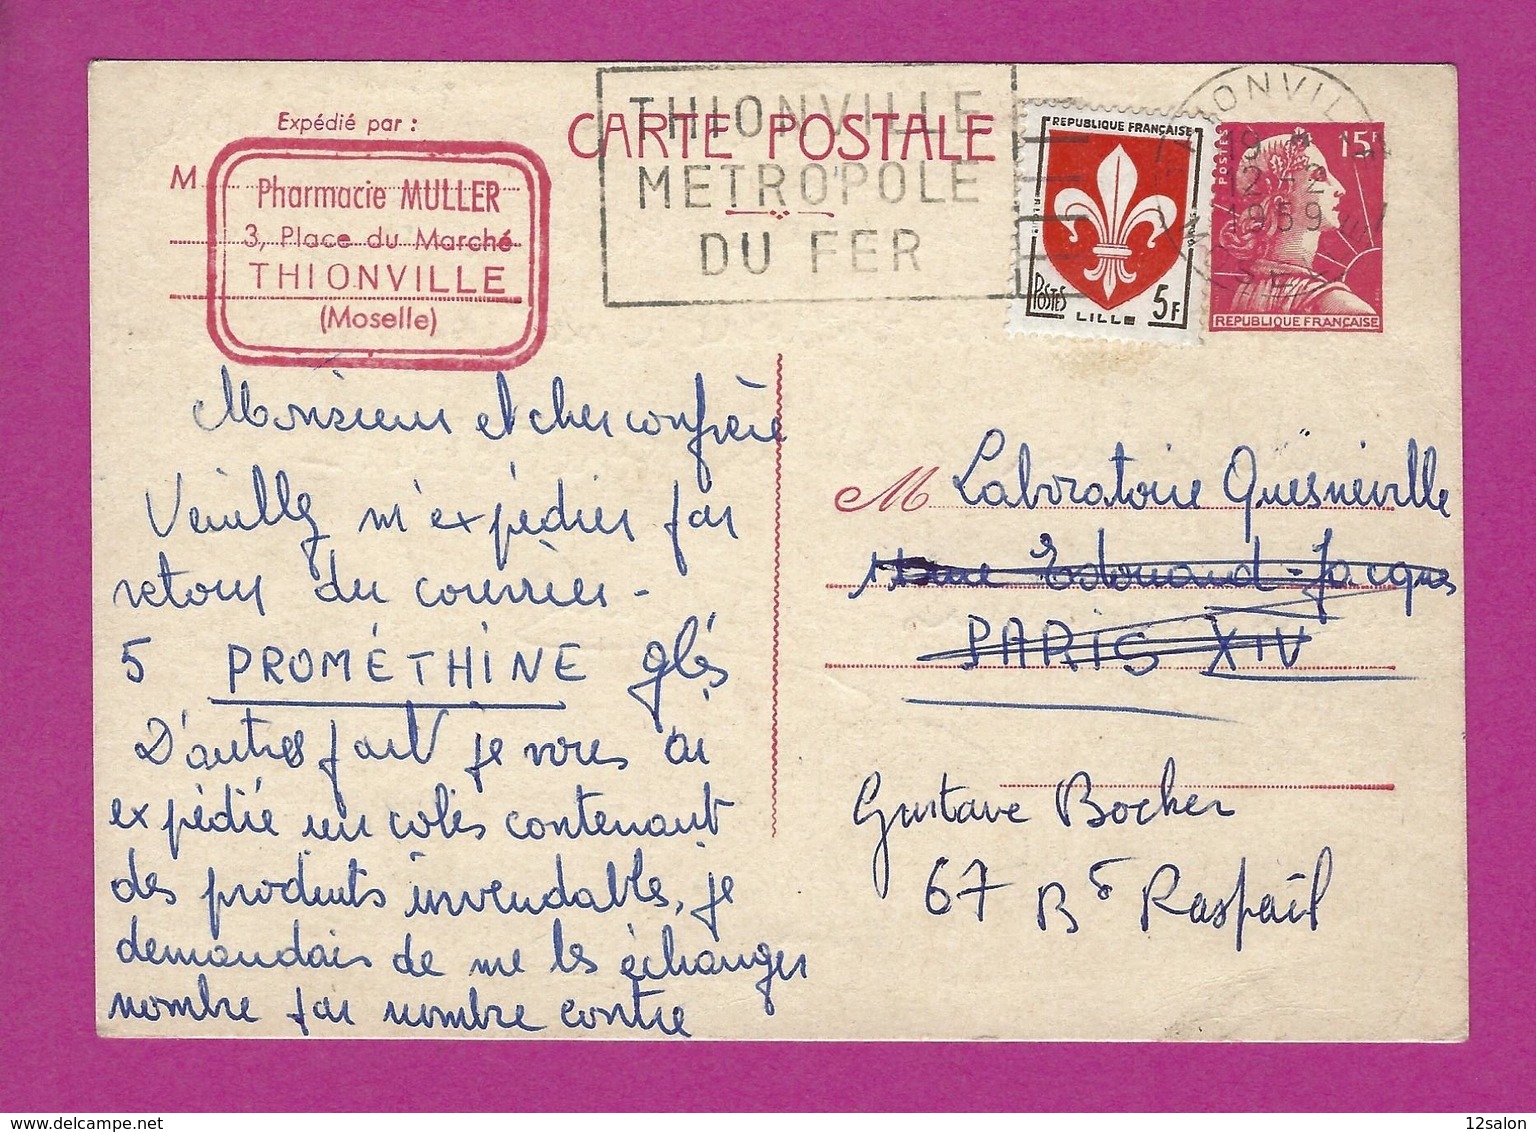 Expédié par :
M
Pharmacie MULLER
3, Place du Marché
THIONVILLE
(Moselle)
CARTE POSTALE
THIONVILLE
METROPOLE
DU FER
REPUBLIQUE FRANÇAISE
POSTES
5F
LILLE
POSTES
15F
REPUBLIQUE FRANÇAISE
THIONVILLE
19
12-2
1959
Monsieur et cher confrère
Veuillez m'expédier par
retour du courrier -
5 PROMÉTHINE glés
D'autres part je vous ai
expédié un colis contenant
des produits invendables, je
demandais de me les échanger
nombre par nombre contre
M Laboratoire Quesneville
Edouard-Jacques
PARIS XIV
Gustave Bocher
67 Bd Raspail
www.delcampe.net
12salon